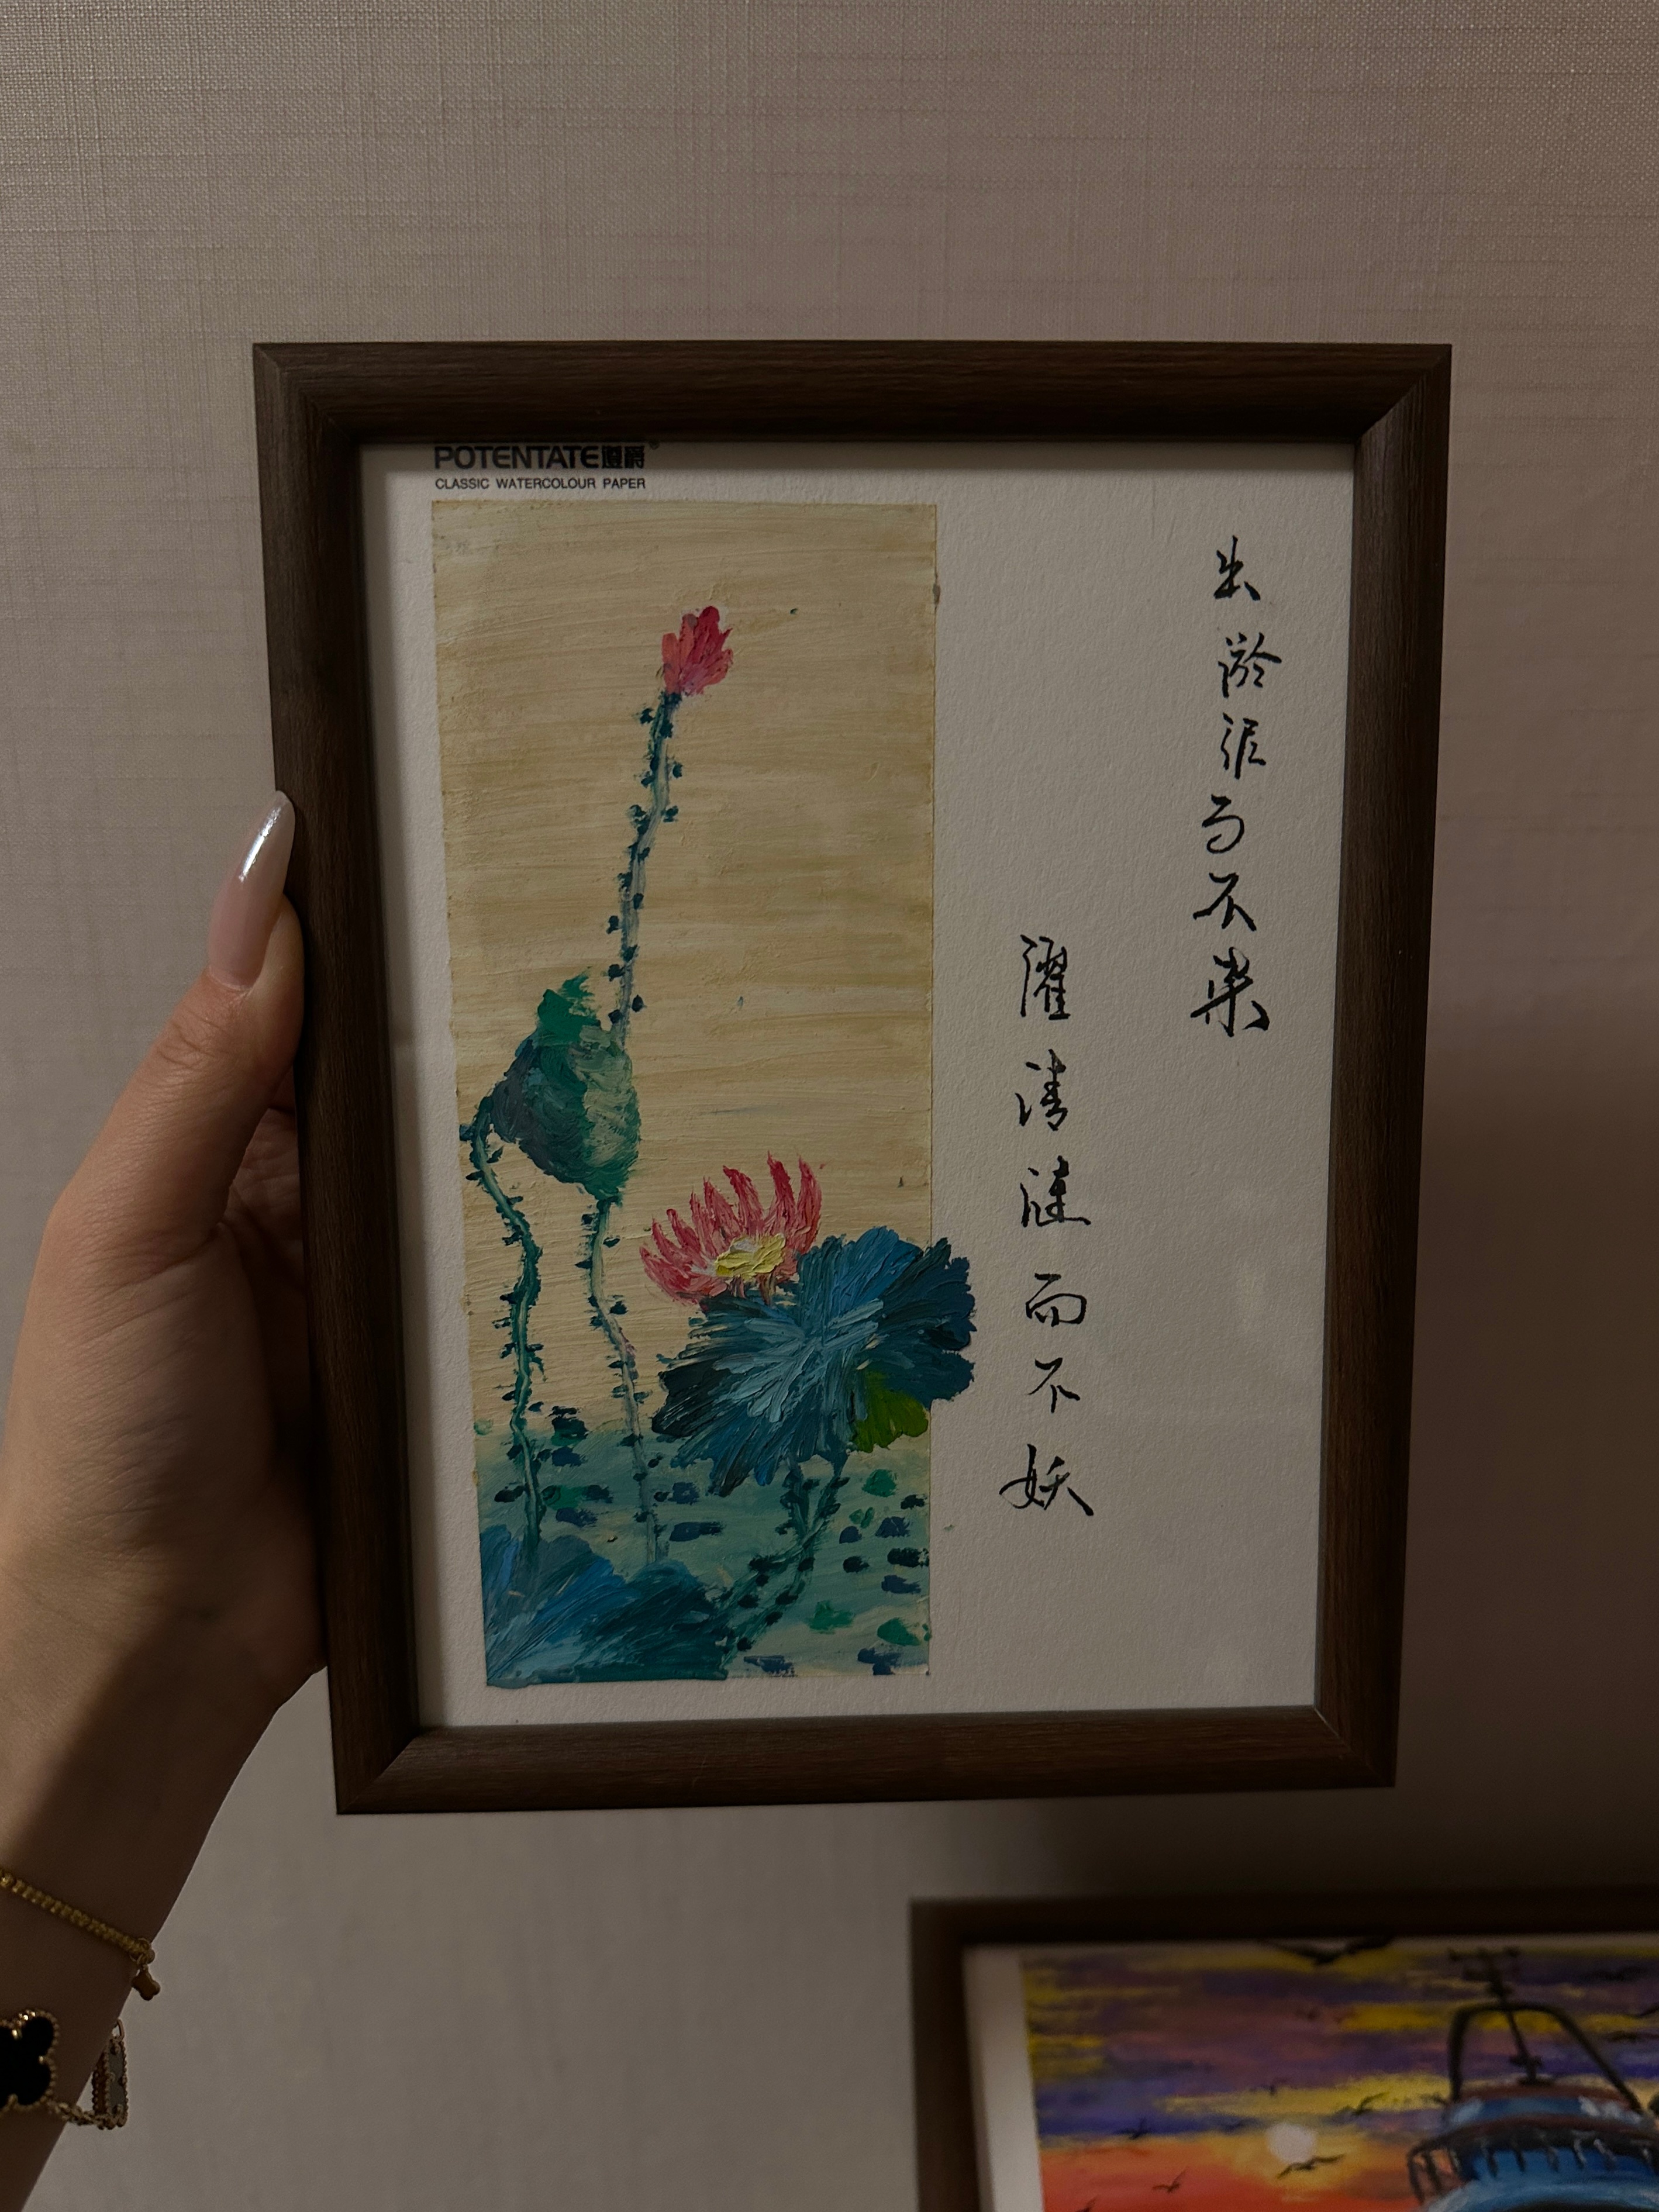 POTENTATE 遵爵®
CLASSIC WATERCOLOUR PAPER
出淤泥而不染
濯清涟而不妖